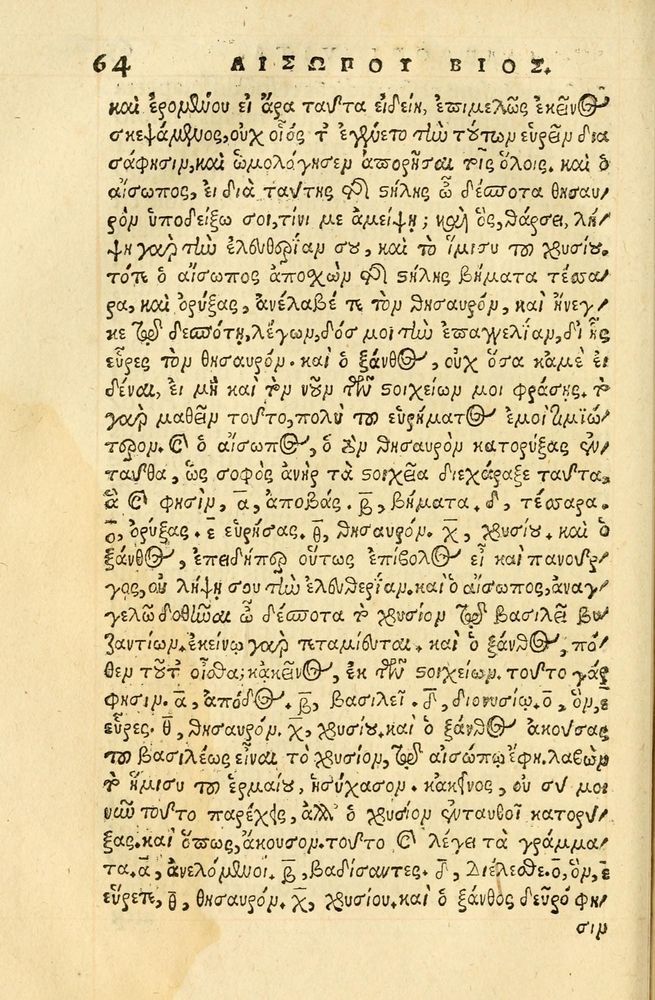 64 ΑΙΣΩΠΟΥ ΒΙΟΣ.
καὶ ἐρομένου εἰ ἄρα ταῦτα εἰδείη, ἐπιμελῶς ἐκεῖνος
σκεψάμενος, οὐχ οἷός τ' ἐγένετο τὴν τούτων εὑρεῖν δια
σάφησιν, καὶ ὡμολόγησεν ἀπορῆσαι τοῖς ὅλοις. καὶ ὁ
αἴσωπος, εἰ διὰ ταύτης τῆς στήλης ὦ δέσποτα θησαυ/
ρὸν ὑποδείξω σοι, τίνι με ἀμείψῃ; καὶ ὃς, θάρσει, λή/
ψῃ γὰρ τὴν ἐλευθερίαν σου, καὶ τὸ ἥμισυ τοῦ χρυσίου.
τότε ὁ αἴσωπος ἀποσχὼν τῆς στήλης βήματα τέσσα/
ρα, καὶ ὀρύξας, ἀνέλαβέ τε τὸν θησαυρὸν, καὶ ἤνεγ/
κε τῷ δεσπότῃ, λέγων, δός μοι τὴν ἐπαγγελίαν, δι' ἧς
εὗρες τὸν θησαυρόν. καὶ ὁ ξάνθος, οὐχ ὅσα κἀμὲ εἰ
δέναι, εἰ μὴ καὶ τὸν νοῦν τῶν στοιχείων μοι φράσῃς. τὸ
γὰρ μαθεῖν τοῦτο, πολὺ τοῦ εὑρήματος ἐμοὶ τιμιώ/
τερον. καὶ ὁ αἴσωπος, ὁ τὸν θησαυρὸν κατορύξας ἐν/
ταῦθα, ὡς σοφὸς ἀνὴρ τὰ στοιχεῖα διεχάραξε ταῦτα.
ἃ καὶ φησὶν, α, ἀποβάς. β, βήματα. δ, τέσσαρα.
ο, ὀρύξας. ε εὑρήσας. θ, θησαυρόν. χ, χρυσίου. καὶ ὁ
ξάνθος, ἐπειδήπερ οὕτως ἐπίβολος εἶ καὶ πανοῦρ/
γος, οὐ λήψῃ σου τὴν ἐλευθερίαν. καὶ ὁ αἴσωπος, ἀναγ/
γελῶ δοθῆναι ὦ δέσποτα τὸ χρυσίον τῷ βασιλεῖ Βυ/
ζαντίων. ἐκείνῳ γὰρ τεταμίευται. καὶ ὁ ξάνθος, πό/
θεν τοῦτ' οἶσθα; κἀκεῖνος, ἐκ τῶν στοιχείων. τοῦτο γάρ
φησιν. α, ἀπόδος. β, βασιλεῖ. δ, διονυσίῳ. ο, ὃν, ε
εὗρες. θ, θησαυρόν. χ, χρυσίου. καὶ ὁ ξάνθος ἀκούσας
τοῦ βασιλέως εἶναι τὸ χρυσίον, τῷ αἰσώπῳ ἔφη. λαβὼν
τὸ ἥμισυ τοῦ ἑρμαίου, ἡσύχασον. κἀκεῖνος, οὐ σύ μοι
νῦν τοῦτο παρέχεις, ἀλλ' ὁ χρυσίον ἐνταυθοῖ κατορύ/
ξας. καὶ ὅπως, ἄκουσον. τοῦτο καὶ λέγει τὰ γράμμα/
τα. α, ἀνελόμενοι. β, βαδίσαντες. δ, Διέλεσθε. ο, ὃν, ε
εὕρετε, θ, θησαυρόν. χ, χρυσίου. καὶ ὁ ξάνθος δεῦρό φη/
σιν